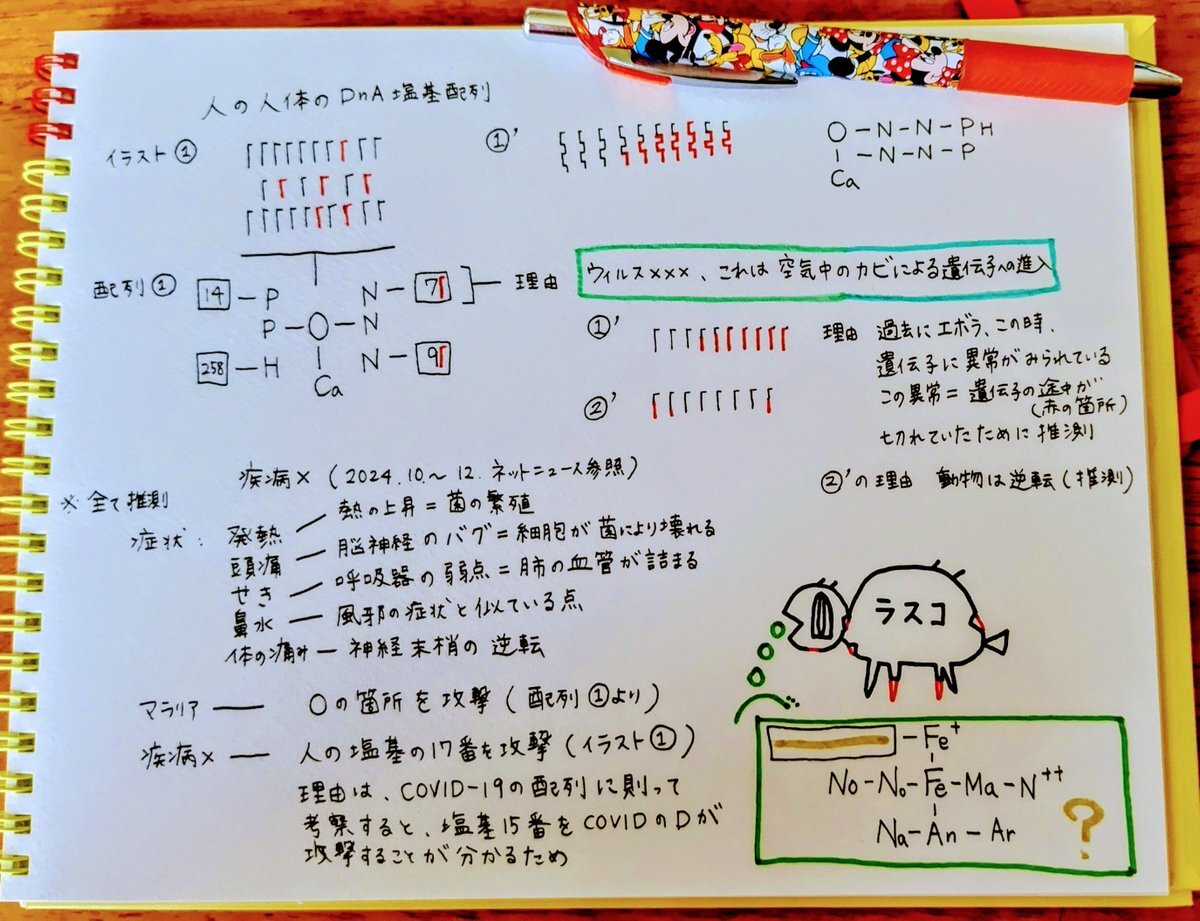 人の人体のDnA塩基配列
イラスト①
①'
O-N-N-PH
-N-N-P
Ca
配列①
14-P
N-7
理由
P-O-N
258-H
N-9
Ca
ウィルス×××、これは空気中のカビによる遺伝子への進入
①'
理由 過去にエボラ、この時、
遺伝子に異常がみられている
この異常=遺伝子の途中が
(赤の箇所)
切れていたために推測
②'
②'の理由 動物は逆転(推測)
疾病×(2024.10.~12.ネットニュース参照)
※全て推測
症状:
発熱
熱の上昇=菌の繁殖
頭痛
脳神経のバグ=細胞が菌により壊れる
せき
呼吸器の弱点=肺の血管が詰まる
鼻水
風邪の症状と似ている点
体の痛み-神経末梢の逆転
マラリア― Oの箇所を攻撃(配列①より)
疾病×― 人の塩基の17番を攻撃(イラスト①)
理由は、COVID-19の配列に則って
考察すると、塩基15番をCOVIDのDが
攻撃することが分かるため
ラスコ
-Fe+
No-No-Fe-Ma-N++
Na-An-Ar
?